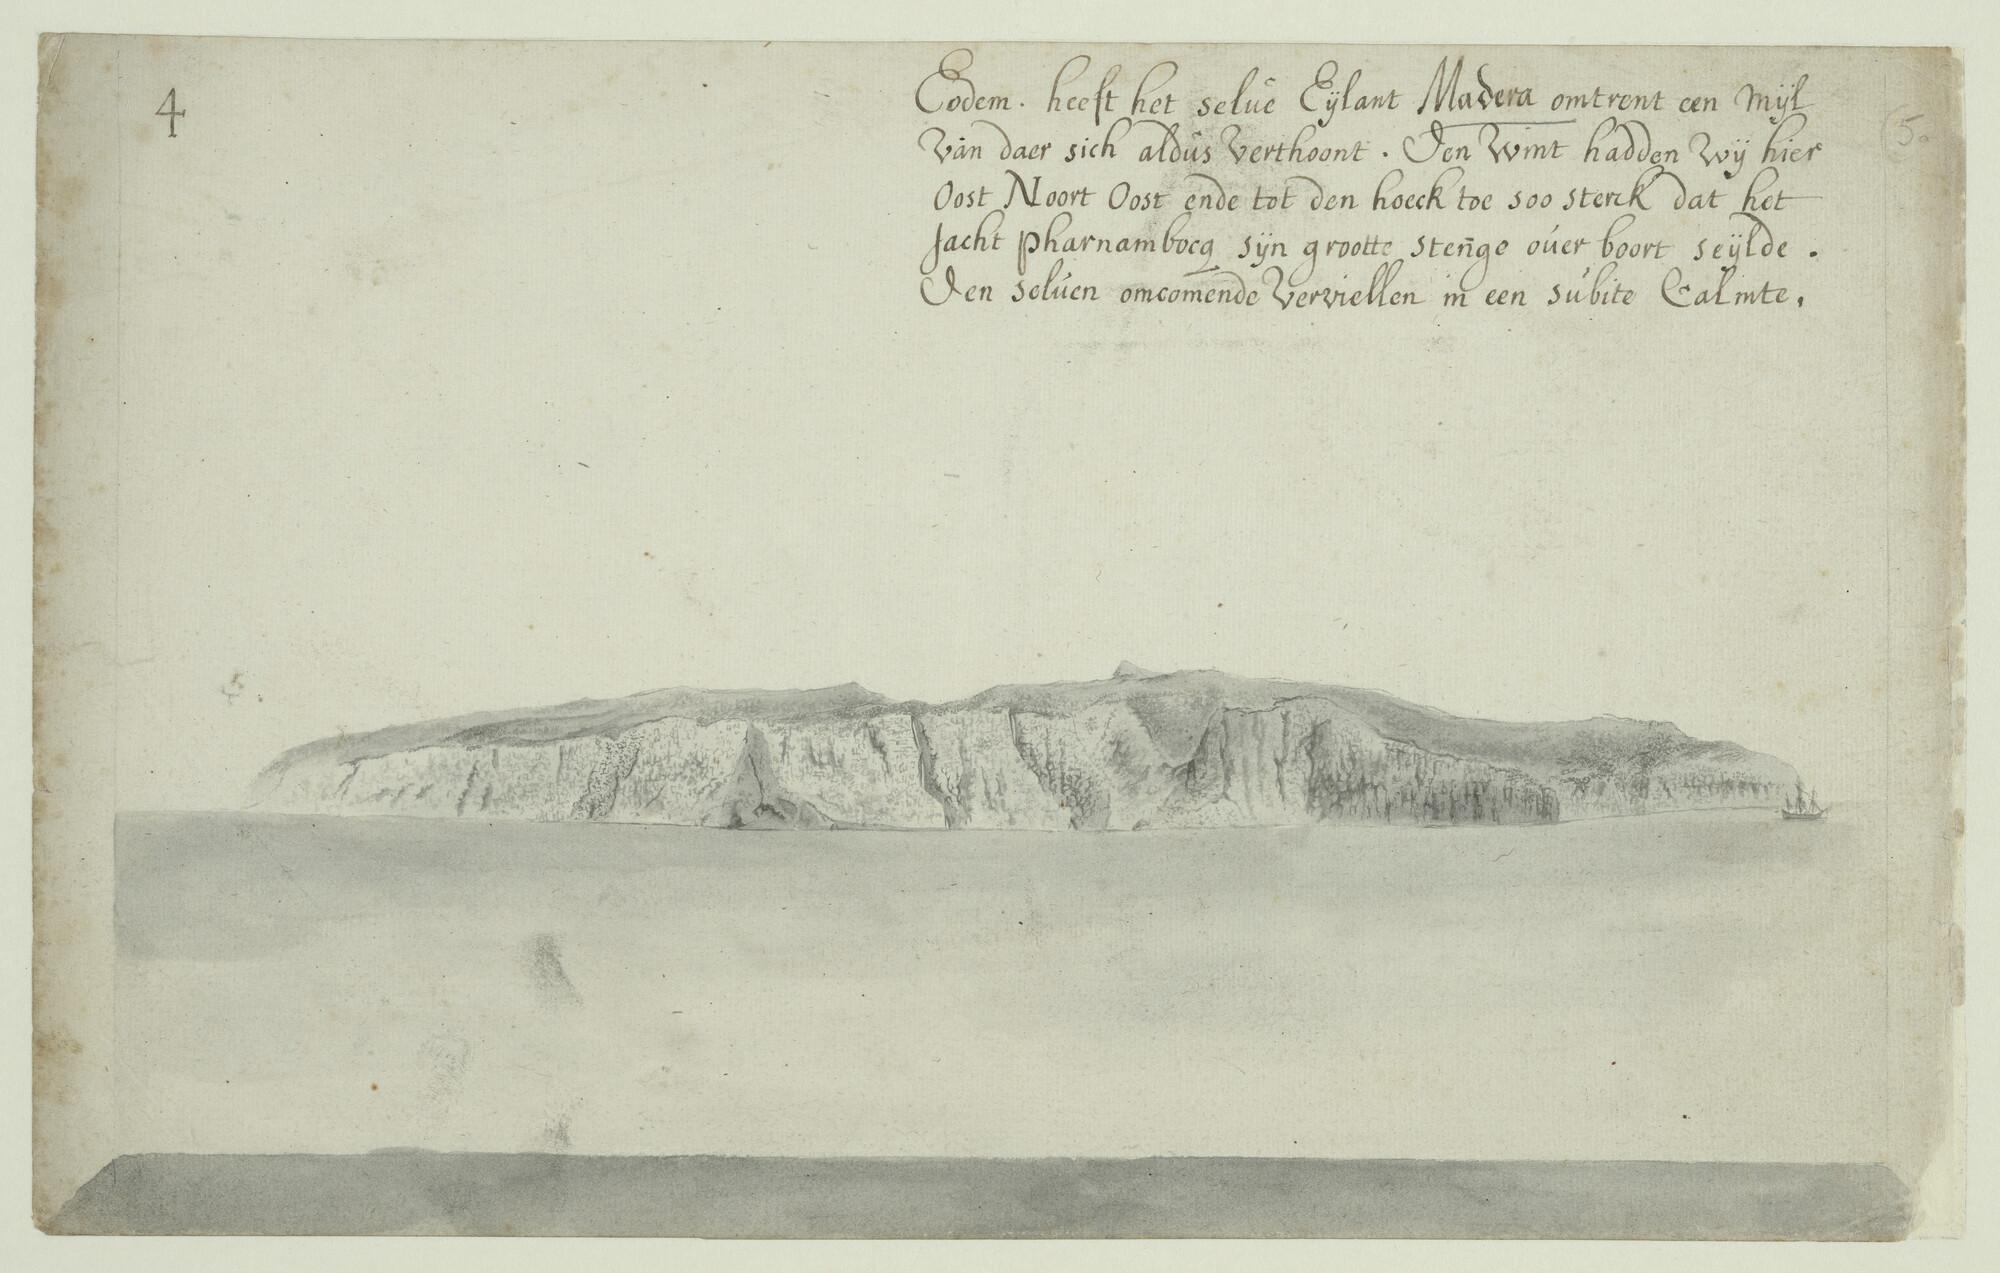 4
Eodem. heeft het selue Eÿlant Madera omtrent een Mijl
van daer sich aldus verthoont. Den Wint hadden wij hier
Oost Noort Oost ende tot den hoeck toe soo sterck dat het
Jacht Pharnambocq sÿn grootte stenge ouer boort seÿlde.
Den seluen omcomende verviellen in een subite Calmte,
5.